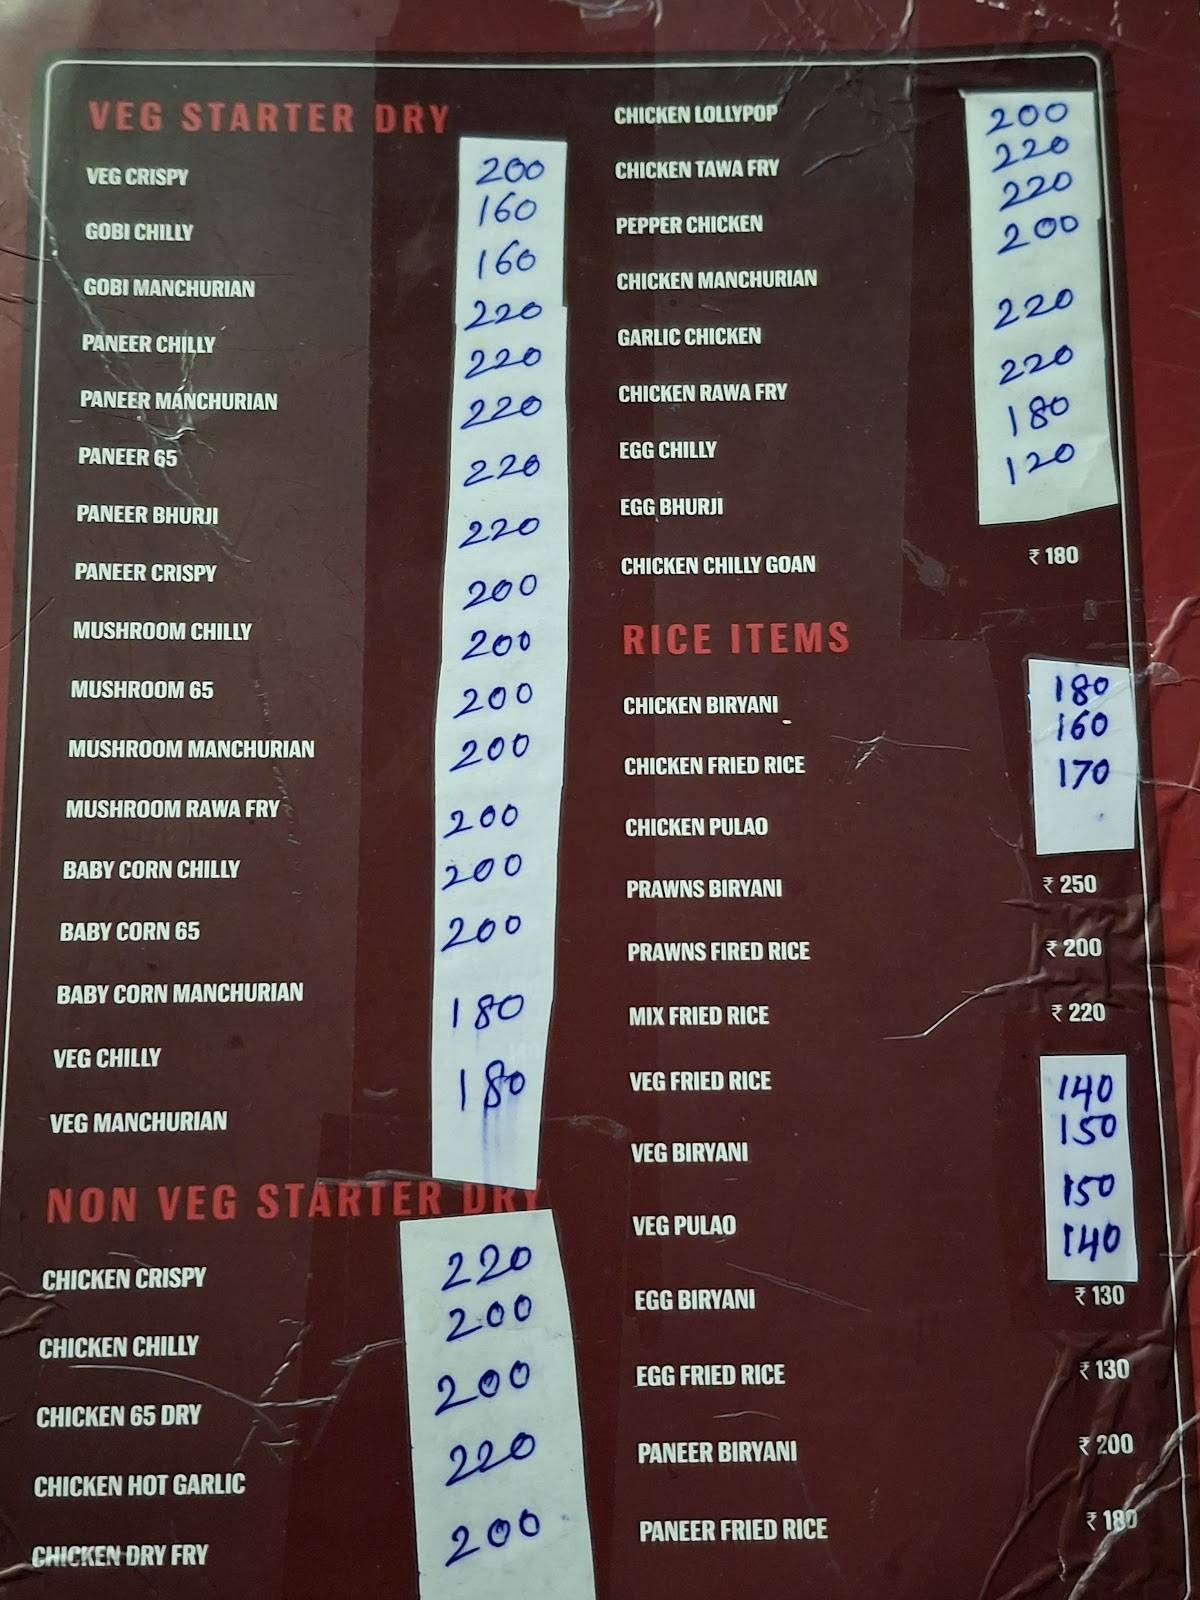 VEG STARTER DRY
VEG CRISPY 200
GOBI CHILLY 160
GOBI MANCHURIAN 160
PANEER CHILLY 220
PANEER MANCHURIAN 220
PANEER 65 220
PANEER BHURJI 220
PANEER CRISPY 220
MUSHROOM CHILLY 200
MUSHROOM 65 200
MUSHROOM MANCHURIAN 200
MUSHROOM RAWA FRY 200
BABY CORN CHILLY 200
BABY CORN 65 200
BABY CORN MANCHURIAN 200
VEG CHILLY 180
VEG MANCHURIAN 180
NON VEG STARTER DRY
CHICKEN CRISPY 220
CHICKEN CHILLY 200
CHICKEN 65 DRY 200
CHICKEN HOT GARLIC 220
CHICKEN DRY FRY 200
CHICKEN LOLLYPOP 200
CHICKEN TAWA FRY 220
PEPPER CHICKEN 220
CHICKEN MANCHURIAN 200
GARLIC CHICKEN 220
CHICKEN RAWA FRY 220
EGG CHILLY 180
EGG BHURJI 120
CHICKEN CHILLY GOAN ₹ 180
RICE ITEMS
CHICKEN BIRYANI 180
CHICKEN FRIED RICE 160
CHICKEN PULAO 170
PRAWNS BIRYANI ₹ 250
PRAWNS FIRED RICE ₹ 200
MIX FRIED RICE ₹ 220
VEG FRIED RICE 140
VEG BIRYANI 150
VEG PULAO 150
140
EGG BIRYANI ₹ 130
EGG FRIED RICE ₹ 130
PANEER BIRYANI ₹ 200
PANEER FRIED RICE ₹ 180